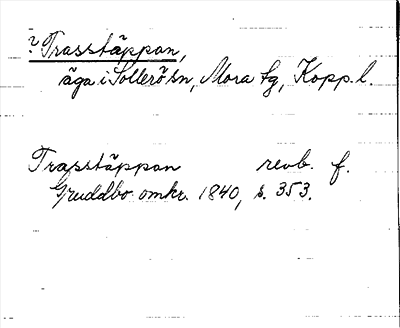 ? Trasstäppan,
äga i Sollerö sn, Mora tg, Kopp. l.
Trasstäppan revb. f.
Gruddbo omkr. 1840, s. 353.